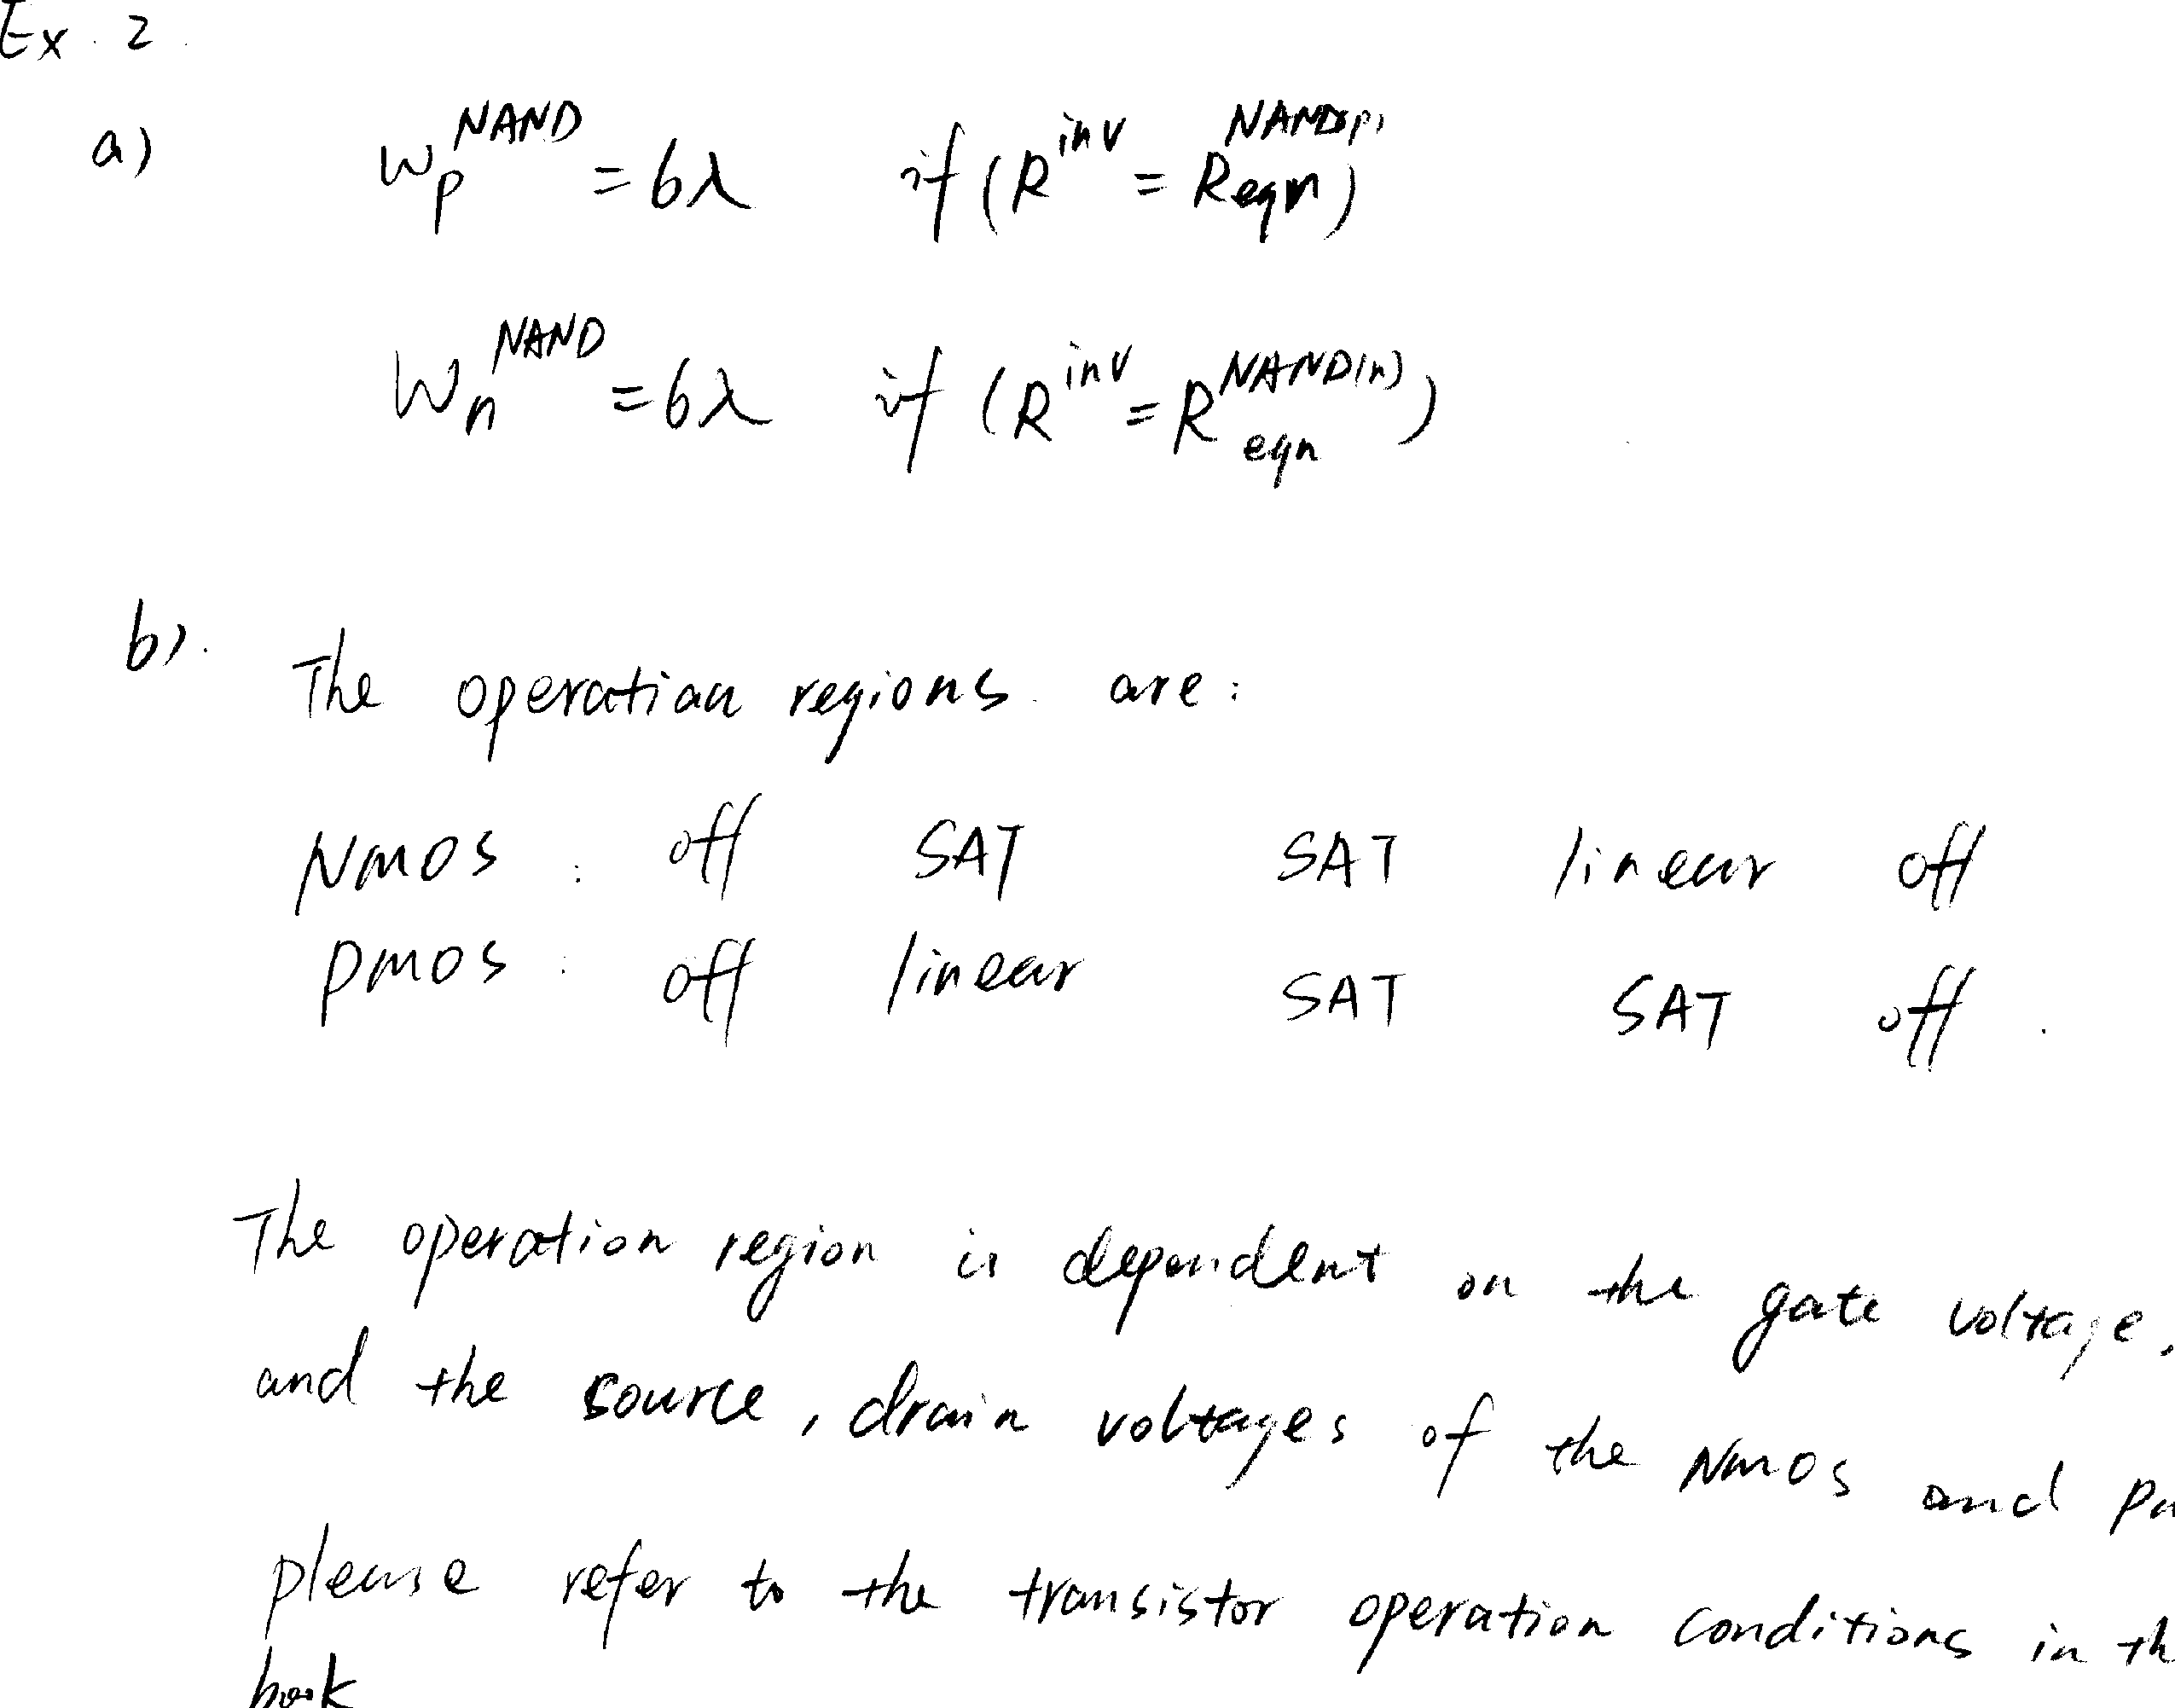 Ex. 2.
a) Wp^NAND = 6λ if (R^inv = Reqn^NAND(p))
Wn^NAND = 6λ if (R^inv = Reqn^NAND(n))
b). The operation regions are:
NMOS : off SAT SAT linear off
PMOS : off linear SAT SAT off.
The operation region is dependent on the gate voltage,
and the source, drain voltages of the NMOS and PM
please refer to the transistor operation conditions in th
book